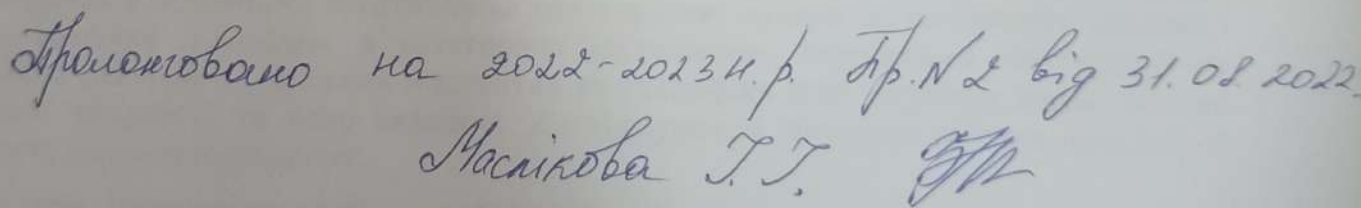 Пролонговано на 2022-2023 н.р. Пр. N 2 від 31.08.2022.
Маслікова І.І.